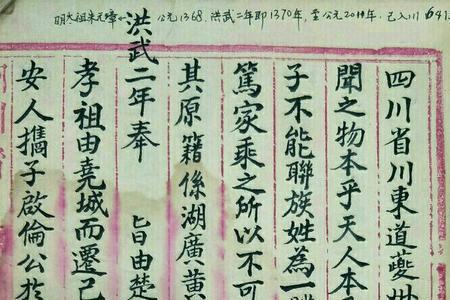 明太祖朱元璋 公元1368. 洪武二年即1370年, 至公元2011年. 已入川 641
四川省川東道夔州
聞之物本乎天人本
子不能聯族姓為一
篤家乘之所以不可
其原籍係湖廣黃
洪武二年奉 旨由楚
孝祖由堯城而遷己
安人攜子啟倫公於